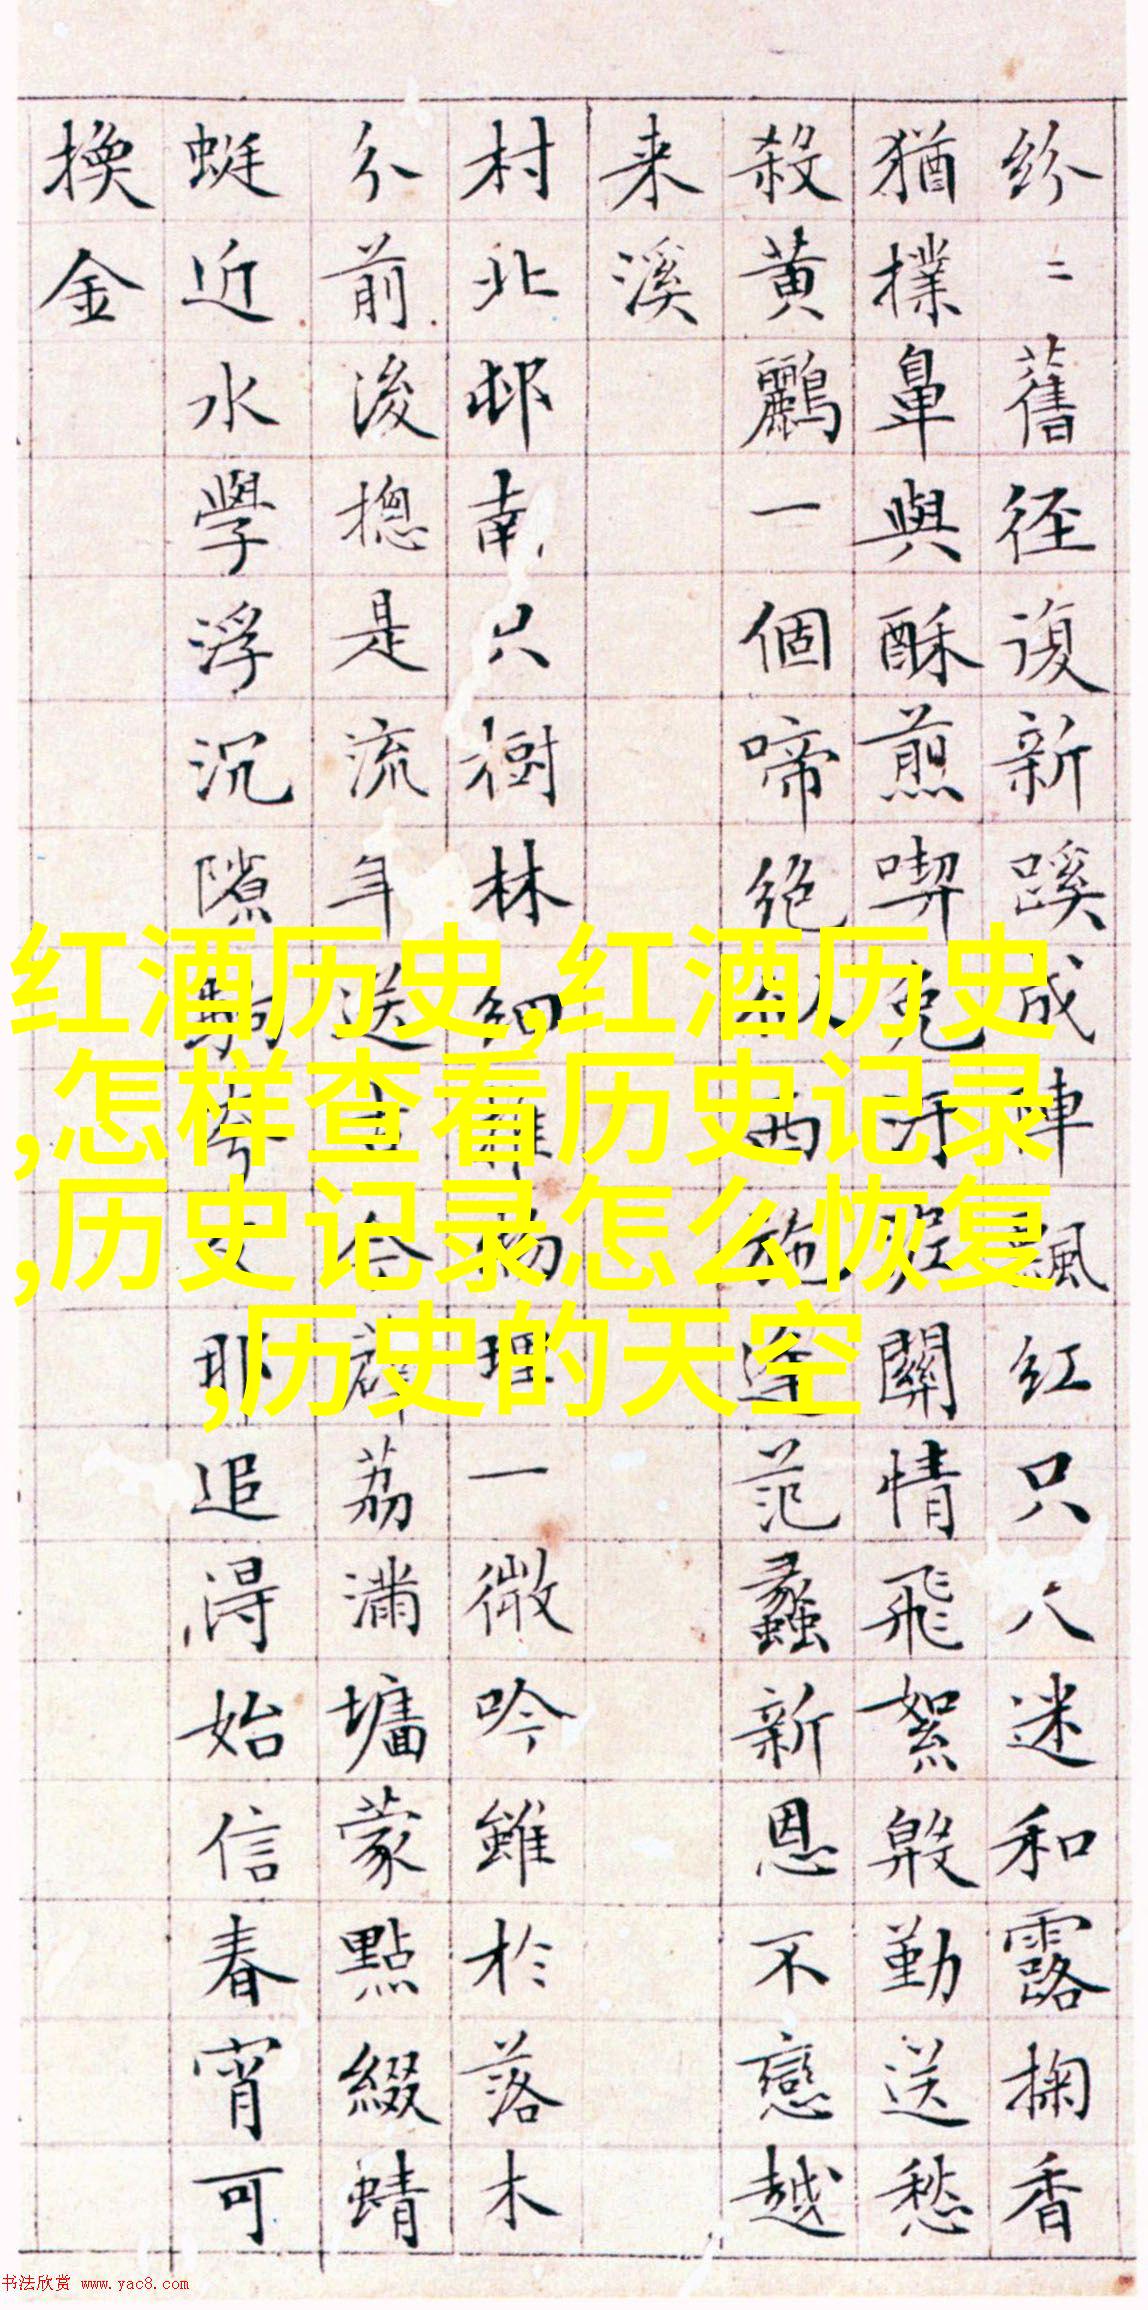 紛〻舊径復新蹊成陣飄紅只迷和露掬香
猶撲鼻與酥煎喫免汙關情飛絮殷勤送愁
殺黃鸝一個啼絶西施逢范蠡新恩不戀越
来溪
村北邨南只樹林細推物理一微吟雖於落木
分前後揔是流年送今薜荔滿墉蒙點綴蜻
蜓近水學浮沉隙駒那追得始信春宵可
換金
红酒历史,红酒历史
,怎样查看历史记录
,历史记录怎么恢复
,历史的天空
书法欣赏 www.yac8.com